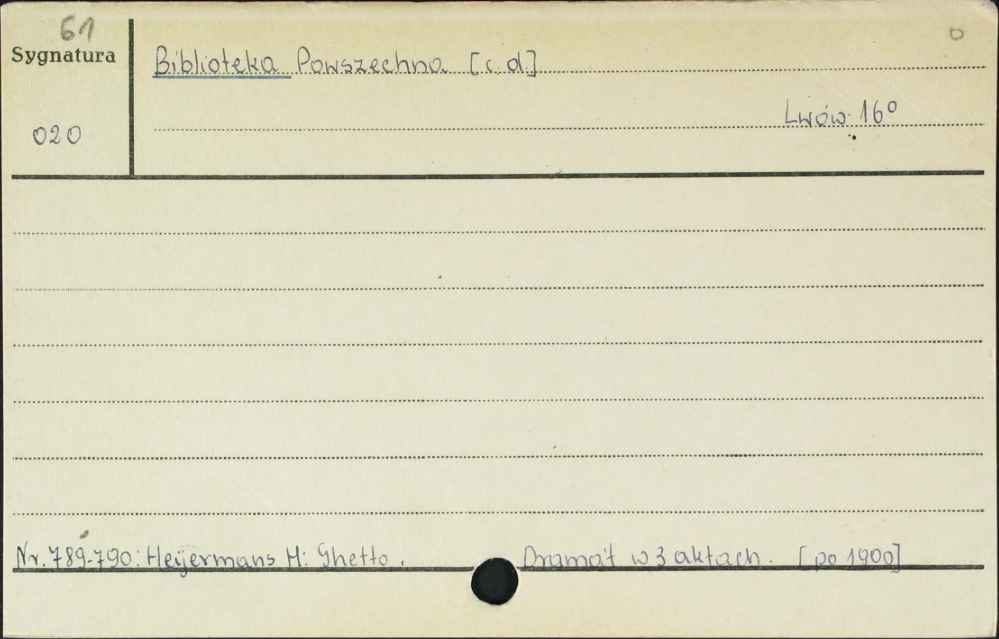 61
Sygnatura
Biblioteka Powszechna [c. d.]
020
Lwów 16°
Nr. 789-790: Heijermans H: Ghetto. Dramat w 3 aktach. [po 1900]